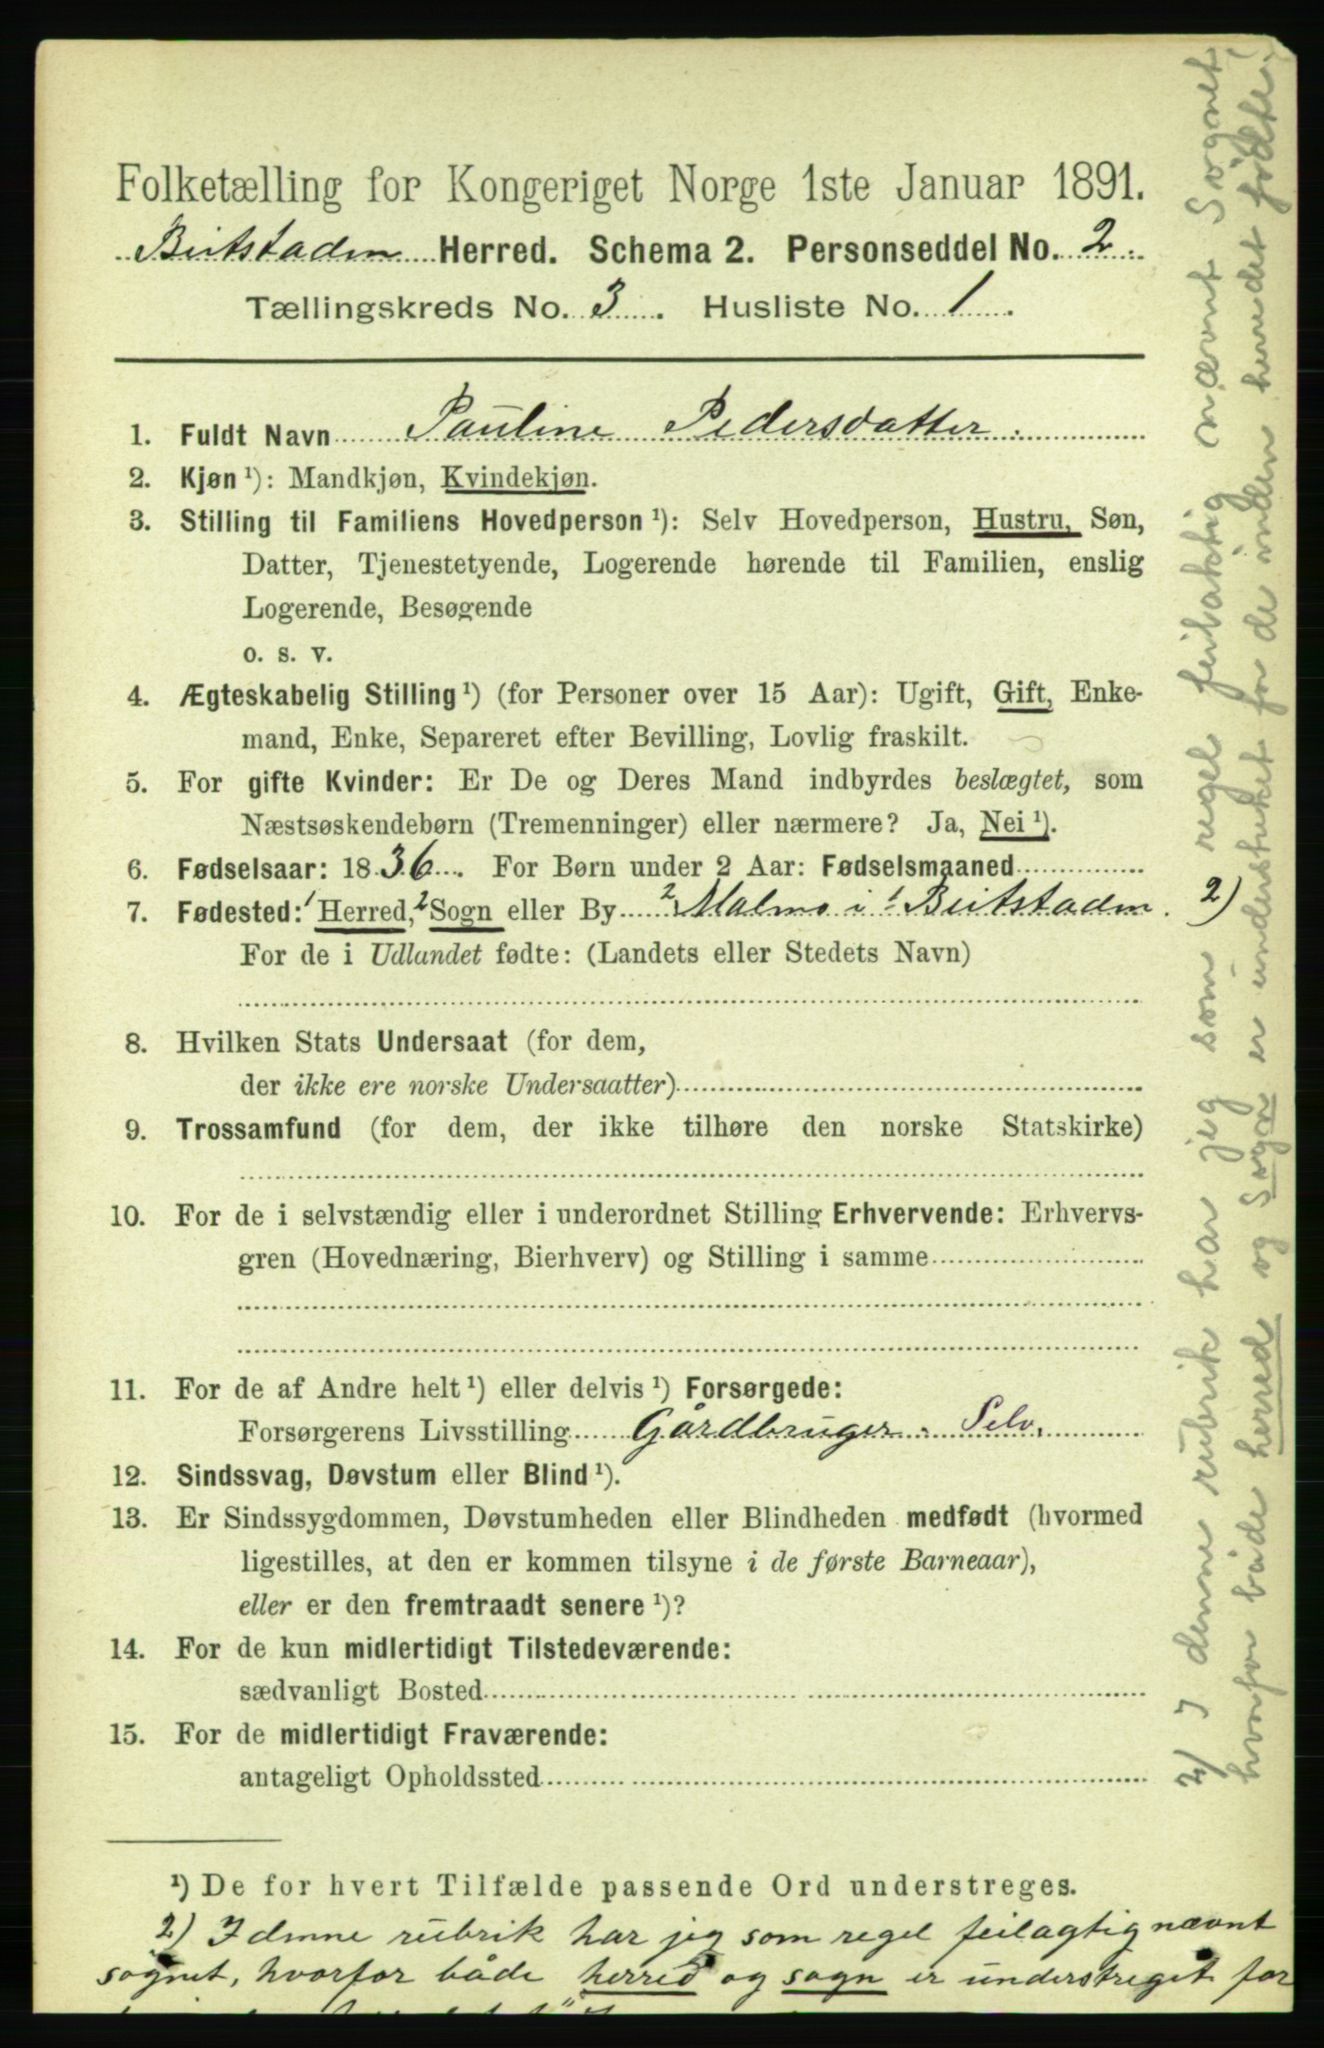 Folketælling for Kongeriget Norge 1ste Januar 1891.
Beitstaden Herred. Schema 2. Personseddel No. 2.
Tællingskreds No. 3. Husliste No. 1.
1. Fuldt Navn Pauline Pedersdatter.
2. Kjøn ¹): Mandkjøn, Kvindekjøn.
3. Stilling til Familiens Hovedperson ¹): Selv Hovedperson, Hustru, Søn,
Datter, Tjenestetyende, Logerende hørende til Familien, enslig
Logerende, Besøgende
o. s. v.
4. Ægteskabelig Stilling ¹) (for Personer over 15 Aar): Ugift, Gift, Enke-
mand, Enke, Separeret efter Bevilling, Lovlig fraskilt.
5. For gifte Kvinder: Er De og Deres Mand indbyrdes beslægtet, som
Næstsøskendebørn (Tremenninger) eller nærmere? Ja, Nei ¹).
6. Fødselsaar: 1836. For Børn under 2 Aar: Fødselsmaaned
7. Fødested: ¹ Herred, ² Sogn eller By ² Malmo i ¹ Beitstaden. 2)
For de i Udlandet fødte: (Landets eller Stedets Navn)
8. Hvilken Stats Undersaat (for dem,
der ikke ere norske Undersaatter)
9. Trossamfund (for dem, der ikke tilhøre den norske Statskirke)
10. For de i selvstændig eller i underordnet Stilling Erhvervende: Erhvervs-
gren (Hovednæring, Bierhverv) og Stilling i samme
11. For de af Andre helt ¹) eller delvis ¹) Forsørgede:
Forsørgerens Livsstilling Gårdbruger. Selv.
12. Sindssvag, Døvstum eller Blind ¹).
13. Er Sindssygdommen, Døvstumheden eller Blindheden medfødt (hvormed
ligestilles, at den er kommen tilsyne i de første Barneaar),
eller er den fremtraadt senere ¹)?
14. For de kun midlertidigt Tilstedeværende:
sædvanligt Bosted
15. For de midlertidigt Fraværende:
antageligt Opholdssted
¹) De for hvert Tilfælde passende Ord understreges.
2) I denne rubrik har jeg som regel feilagtig nævnt
sognet, hvorfor både herred og sogn er understreget for
2) I denne rubrik har jeg som regel feilaktig nævnt Sognet,
hvorfor både herred og Sogn er understreket for de inden herredet fødte.